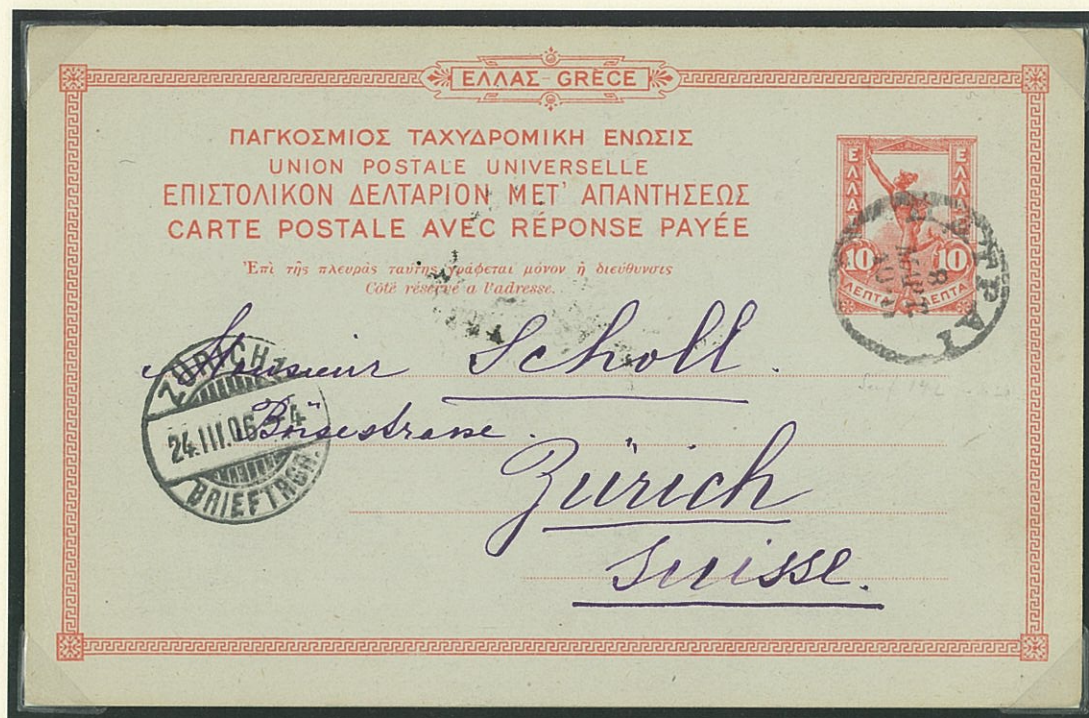 ΕΛΛΑΣ-GRÈCE
ΠΑΓΚΟΣΜΙΟΣ ΤΑΧΥΔΡΟΜΙΚΗ ΕΝΩΣΙΣ
UNION POSTALE UNIVERSELLE
ΕΠΙΣΤΟΛΙΚΟΝ ΔΕΛΤΑΡΙΟΝ ΜΕΤ' ΑΠΑΝΤΗΣΕΩΣ
CARTE POSTALE AVEC RÉPONSE PAYÉE
Ἐπὶ τῆς πλευρᾶς ταύτης γράφεται μόνον ἡ διεύθυνσις
Côté réservé a l'adresse.
ΕΛΛΑΣ
ΕΛΛΑΣ
10 10
ΛΕΠΤΑ ΛΕΠΤΑ
ΠΑΤΡΑΙ
8
ΜΑΡΤ
Monsieur Scholl.
Börsestrasse.
Zürich
Suisse.
ZÜRICH 1
24.III.06. -4
BRIEFTRGR.